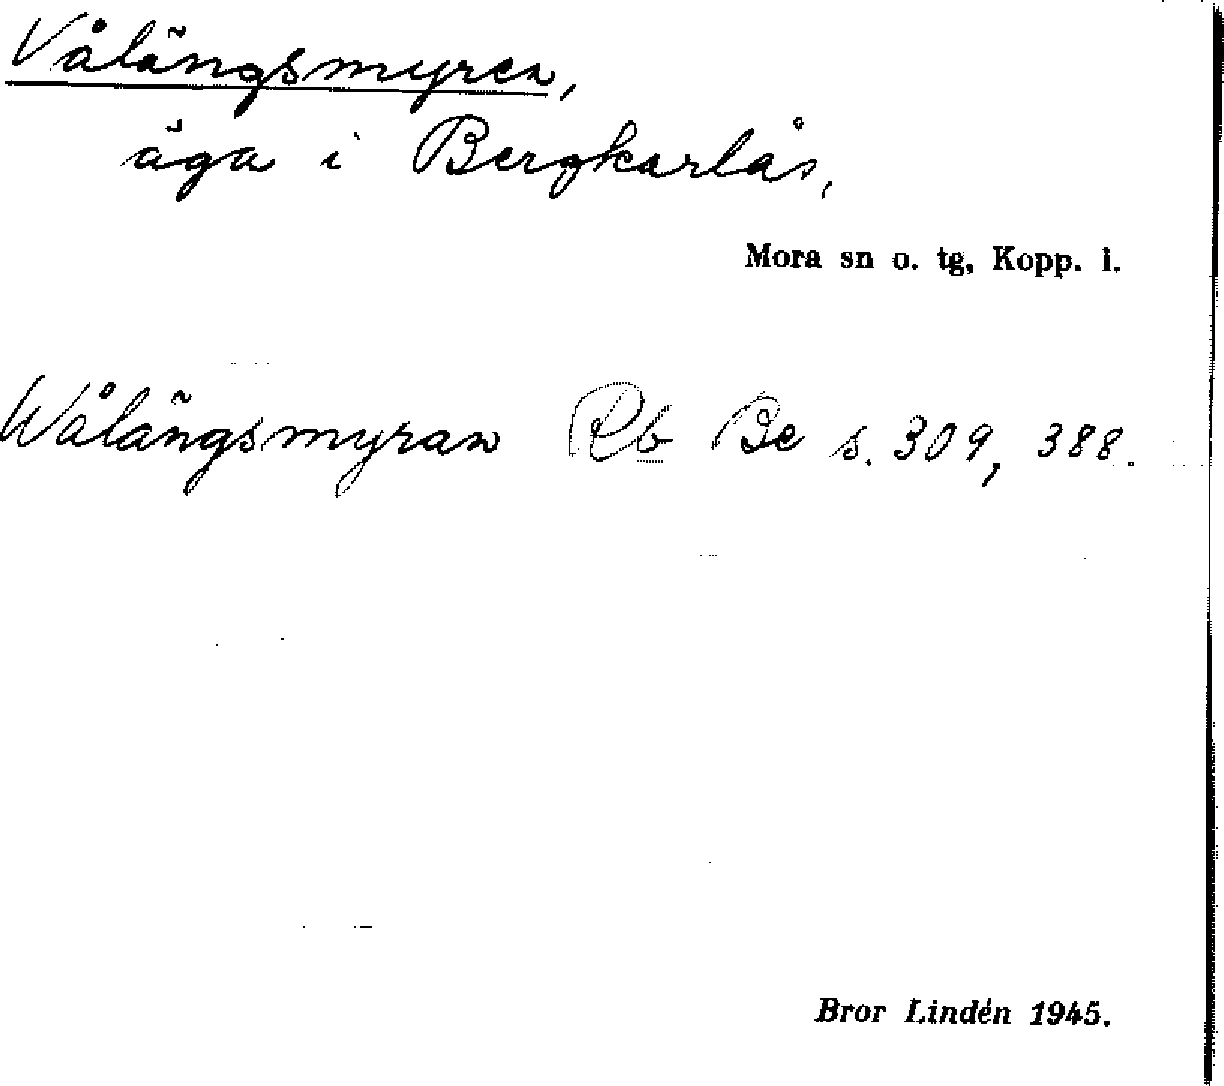 Vålängsmyren,
äga i Bergkarlås,
Mora sn o. tg, Kopp. l.
Wålängsmyran Rb Be s. 309, 388.
Bror Lindén 1945.